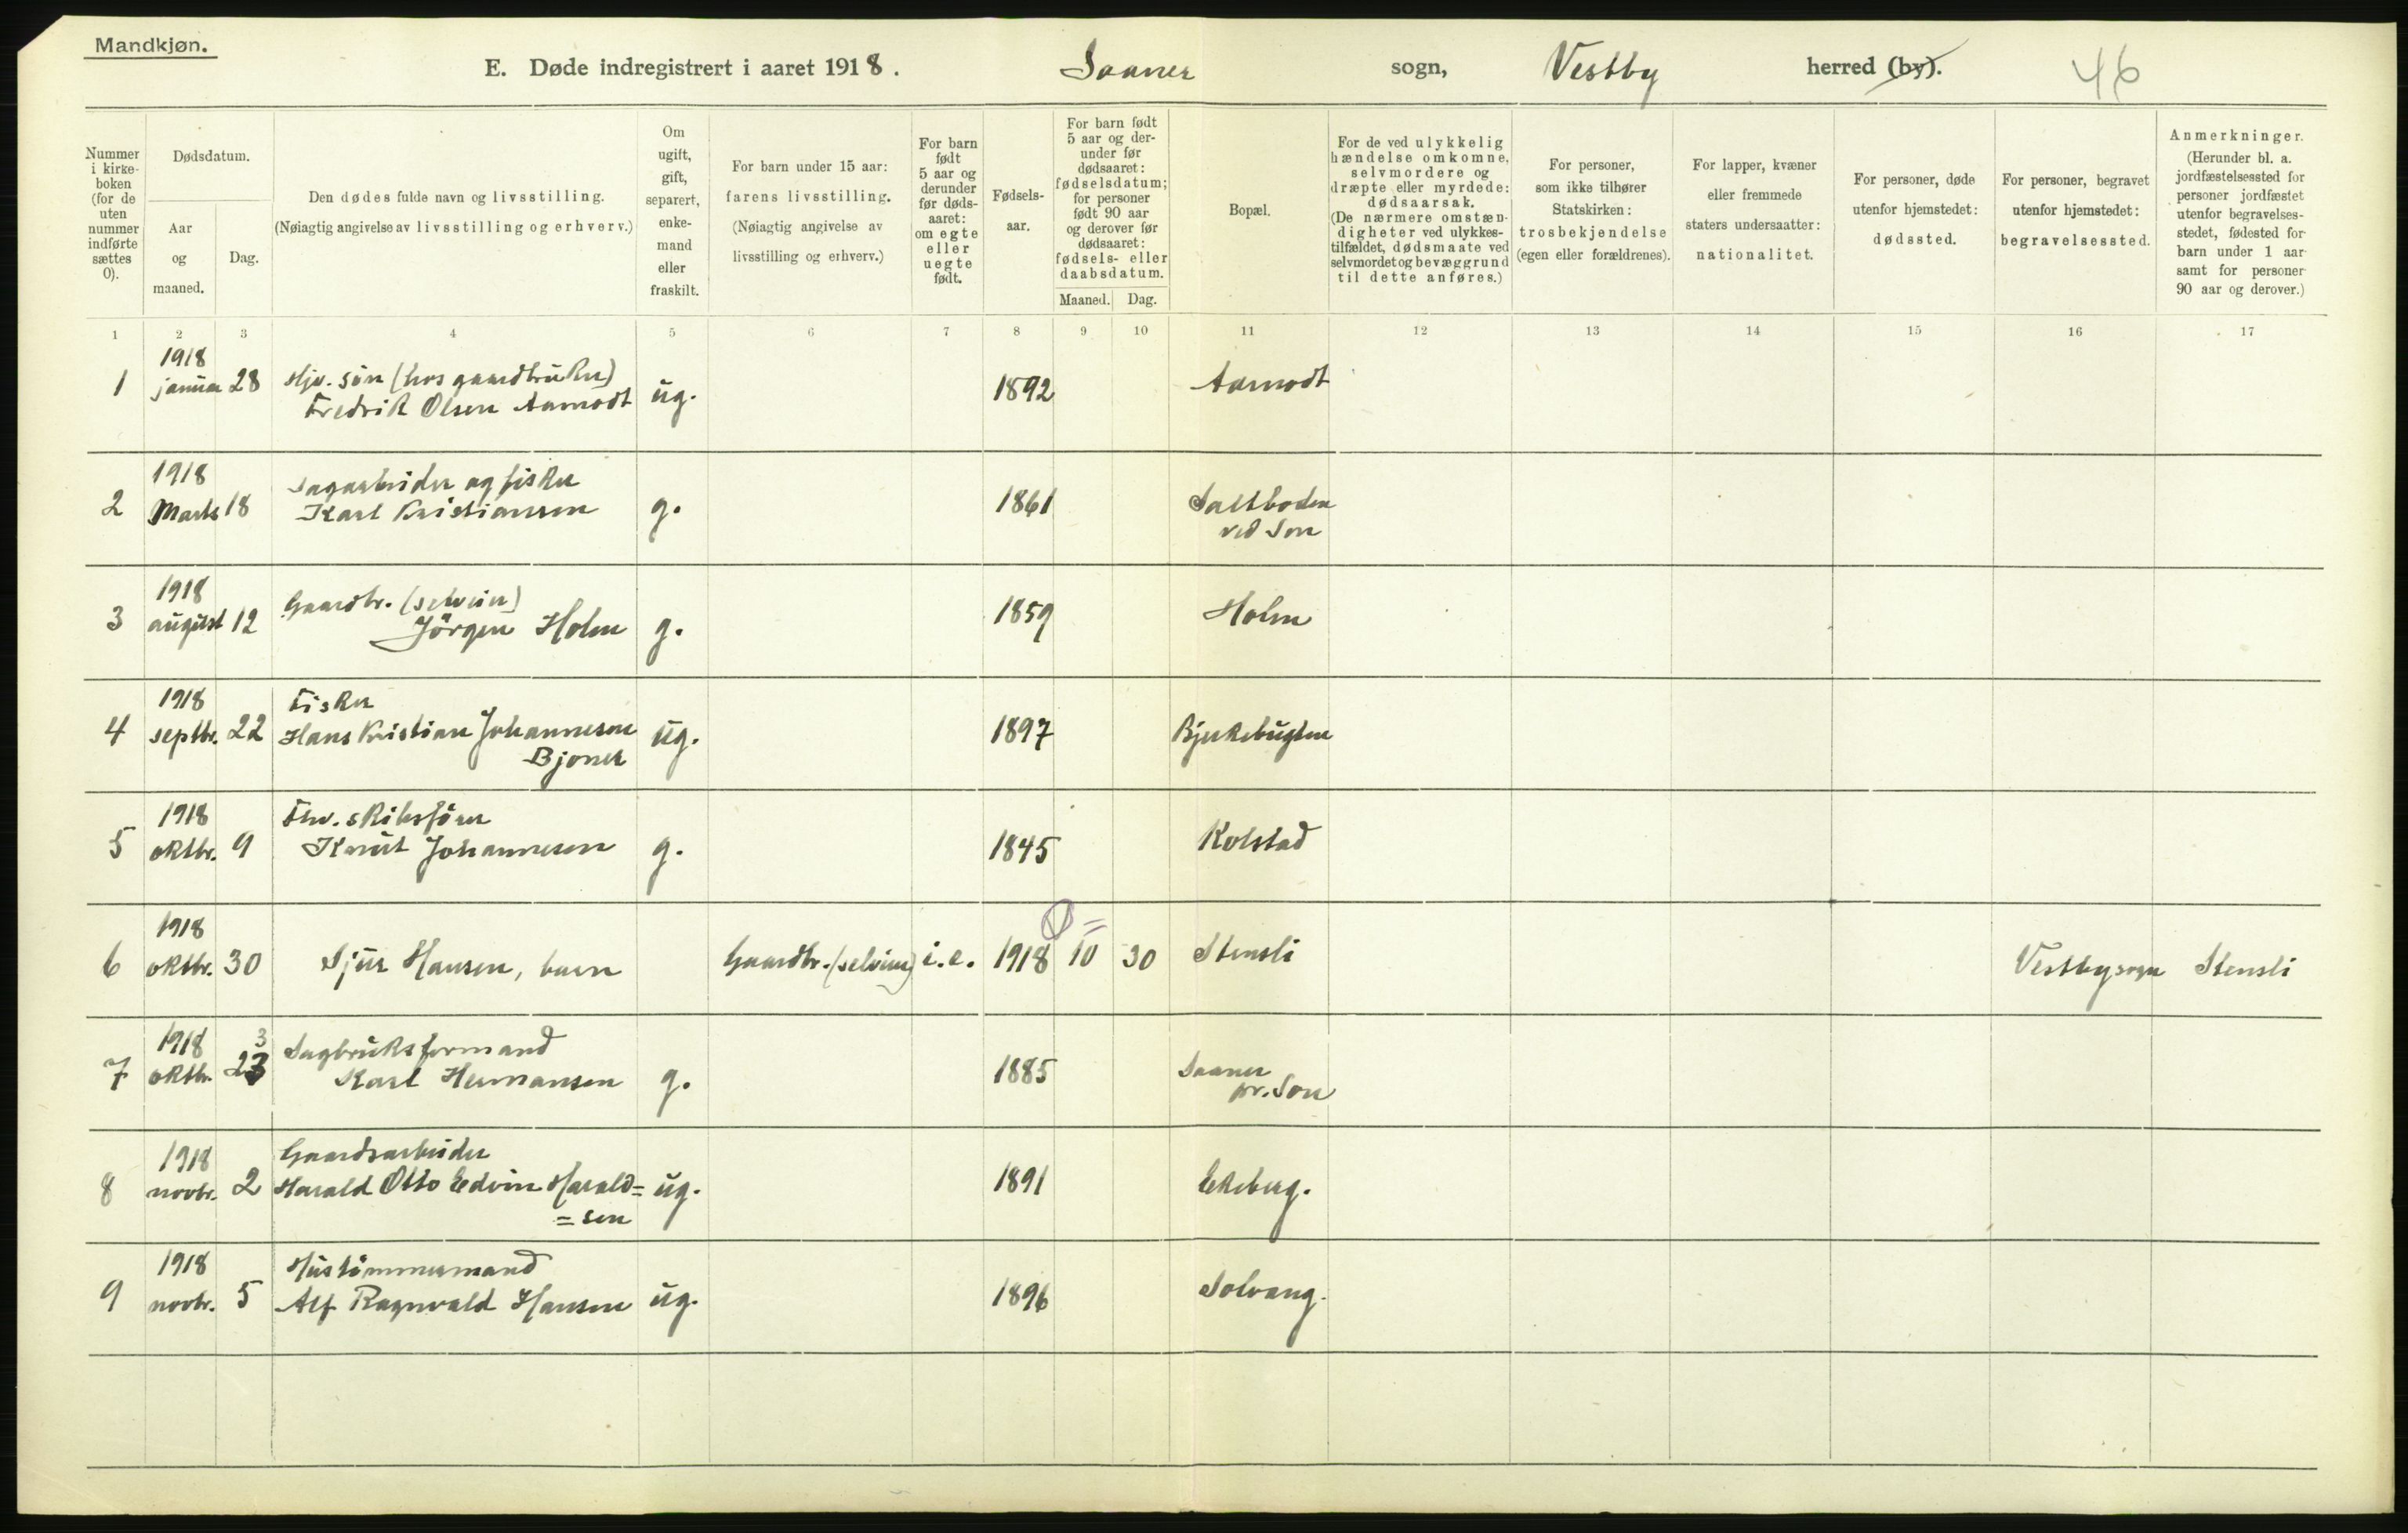 Mandkjøn.
E. Døde indregistrert i aaret 1918. Saaner sogn, Vestby herred (by). 46
Nummer i kirkeboken (for de uten nummer indførte sættes 0).
Dødsdatum.
Aar og maaned.
Dag.
Den dødes fulde navn og livsstilling.
(Nøiagtig angivelse av livsstilling og erhverv.)
Om ugift, gift, separert, enkemand eller fraskilt.
For barn under 15 aar: farens livsstilling.
(Nøiagtig angivelse av livsstilling og erhverv.)
For barn født 5 aar og derunder før dødsaaret: om egte eller uegte født.
Fødselsaar.
For barn født 5 aar og derunder før dødsaaret: fødselsdatum; for personer født 90 aar og derover før dødsaaret: fødsels- eller daabsdatum.
Maaned. Dag.
Bopæl.
For de ved ulykkelig hændelse omkomne, selvmordere og dræpte eller myrdede: dødsaarsak.
(De nærmere omstændigheter ved ulykkestilfældet, dødsmaate ved selvmordet og bevæggrund til dette anføres.)
For personer, som ikke tilhører Statskirken: trosbekjendelse (egen eller forældrenes).
For lapper, kvæner eller fremmede staters undersaatter: nationalitet.
For personer, døde utenfor hjemstedet: dødssted.
For personer, begravet utenfor hjemstedet: begravelsessted.
Anmerkninger.
(Herunder bl. a. jordfæstelsessted for personer jordfæstet utenfor begravelsesstedet, fødested for barn under 1 aar samt for personer 90 aar og derover.)
1 2 3 4 5 6 7 8 9 10 11 12 13 14 15 16 17
1918
1 januar 28 Hjv. søn (hos gaardbruker) Fredrik Olsen Aamodt ug. 1892 Aamodt
1918
2 Marts 18 Sagarbeider og fisker Karl Kristiansen g. 1861 Saltboden ved Son
1918
3 august 12 Gaardbr. (selveier) Jörgen Holm g. 1859 Holm
1918
4 septbr. 22 Fisker Hans Kristian Johannesen Bjoner ug. 1897 Bjerkebugten
1918
5 oktbr. 9 Fhv. skibsfører Knut Johannesen g. 1845 Kolstad
1918
6 oktbr. 30 Sjur Hansen, barn Gaardbr. (selveier) i.e. 1918 10 30 Stensli Vestby sogn Stensli
1918
7 oktbr. 23 3 Sagbruksformand Karl Hermansen g. 1885 Saaner pr. Son
1918
8 novbr. 2 Gaardsarbeider Harald Otto Edvin Harald= =sen ug. 1891 Ekeberg.
1918
9 novbr. 5 Hustømmermand Alf Ragnvald Hansen ug. 1896 Solvang.